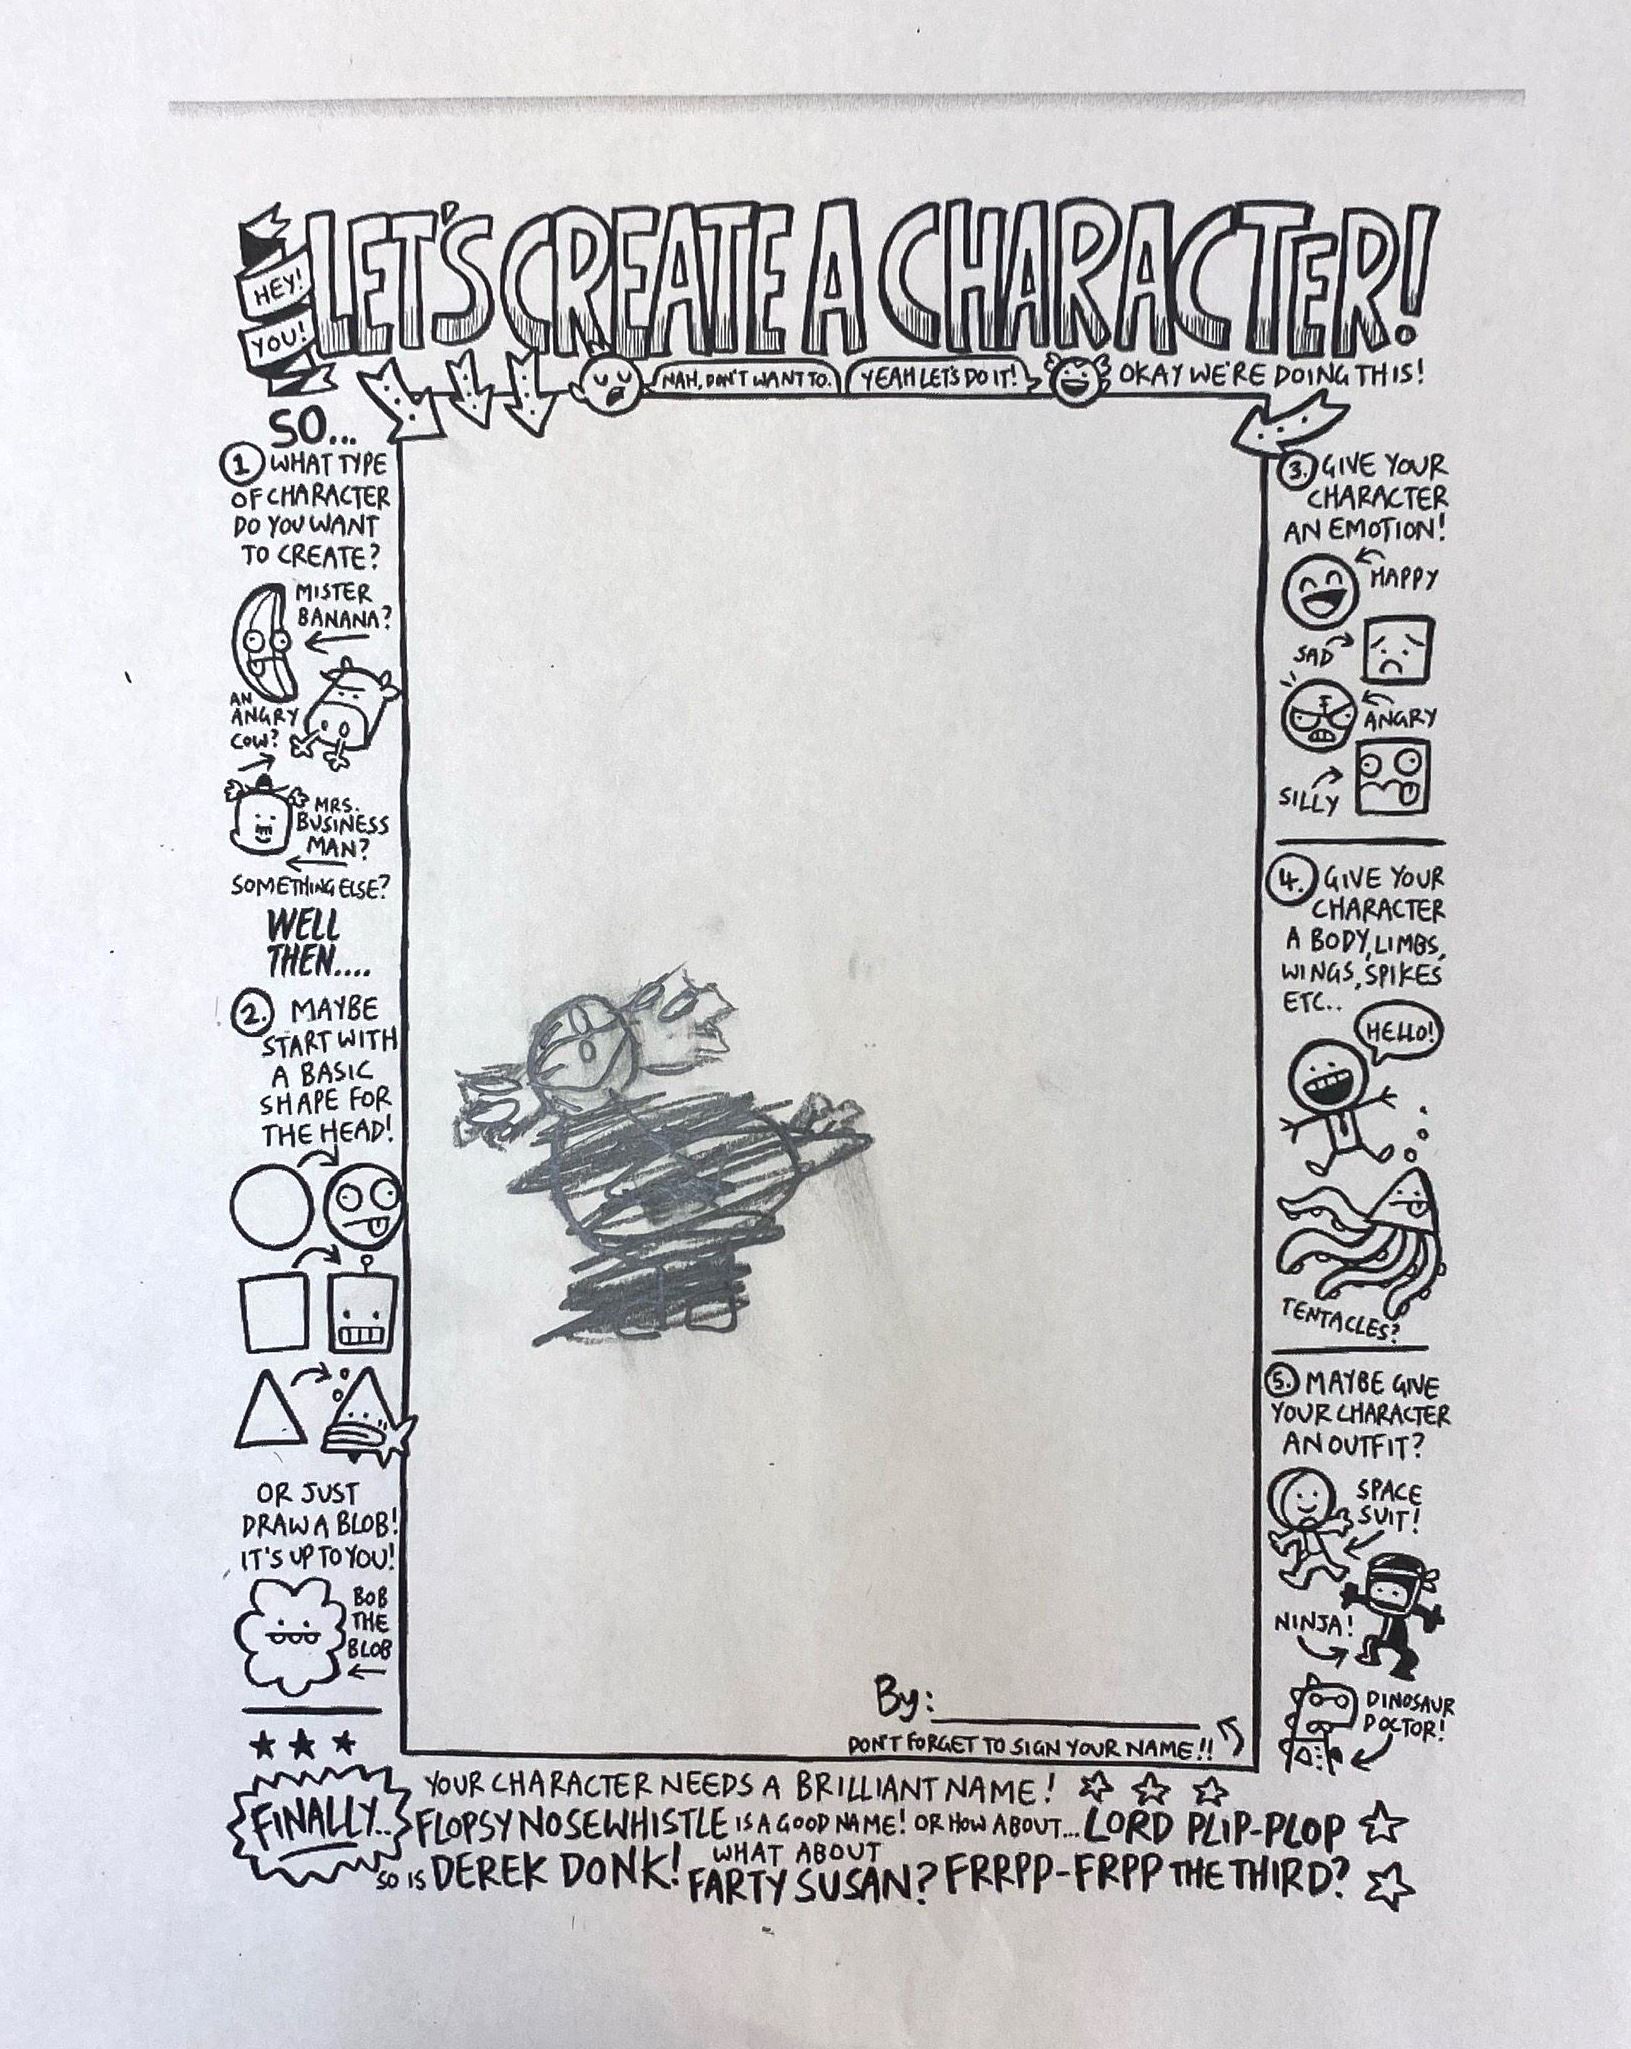 HEY!
YOU!
LET'S CREATE A CHARACTER!
NAH, DON'T WANT TO.
YEAH LET'S DO IT!
OKAY WE'RE DOING THIS!
SO...
1 WHAT TYPE
OF CHARACTER
DO YOU WANT
TO CREATE?
MISTER
BANANA?
AN
ANGRY
COW?
MRS.
BUSINESS
MAN?
SOMETHING ELSE?
WELL
THEN....
2. MAYBE
START WITH
A BASIC
SHAPE FOR
THE HEAD!
OR JUST
DRAW A BLOB!
IT'S UP TO YOU!
BOB
THE
BLOB
3. GIVE YOUR
CHARACTER
AN EMOTION!
HAPPY
SAD
ANGRY
SILLY
4. GIVE YOUR
CHARACTER
A BODY, LIMBS,
WINGS, SPIKES
ETC..
HELLO!
TENTACLES?
5. MAYBE GIVE
YOUR CHARACTER
AN OUTFIT?
SPACE
SUIT!
NINJA!
DINOSAUR
DOCTOR!
By:
DON'T FORGET TO SIGN YOUR NAME!!
FINALLY..
YOUR CHARACTER NEEDS A BRILLIANT NAME!
FLOPSY NOSEWHISTLE IS A GOOD NAME! OR HOW ABOUT... LORD PLIP-PLOP
SO IS DEREK DONK! WHAT ABOUT
FARTY SUSAN? FRRPP-FRPP THE THIRD?